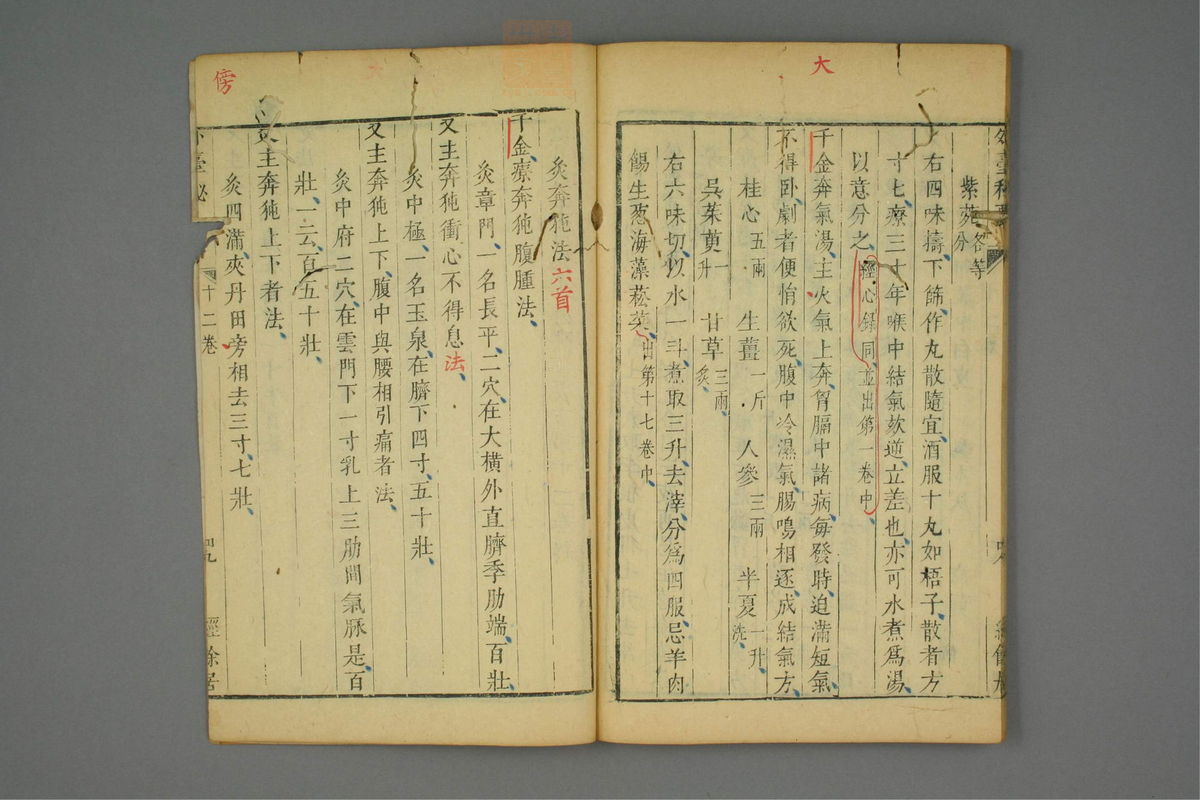 大
紫菀 各等分
右四味擣下篩作丸散隨宜酒服十丸如梧子散者方
寸七療三十年喉中結氣欬逆立差也亦可水煮爲湯
以意分之 經心録同並出第一卷中
千金奔氣湯主火氣上奔胷膈中諸病每發時迫滿短氣
不得卧劇者便惛欲死腹中冷濕氣腸鳴相逐成結氣方
桂心 五兩 生薑 一斤 人參 三兩 半夏 一升洗
吳茱萸 一升 甘草 三兩炙
右六味切以水一斗煮取三升去滓分爲四服忌羊肉
餳生葱海藻菘菜 出第十七卷中
傍
灸奔㹠法六首
千金療奔㹠腹腫法
灸章門一名長平二穴在大橫外直臍季肋端百壯
又主奔㹠衝心不得息法
灸中極一名玉泉在臍下四寸五十壯
又主奔㹠上下腹中與腰相引痛者法
灸中府二穴在雲門下一寸乳上三肋間氣脉是百
壯一云一百五十壯
又主奔㹠上下者法
灸四滿夾丹田旁相去三寸七壯
臺秘 十二卷 四九 經餘居